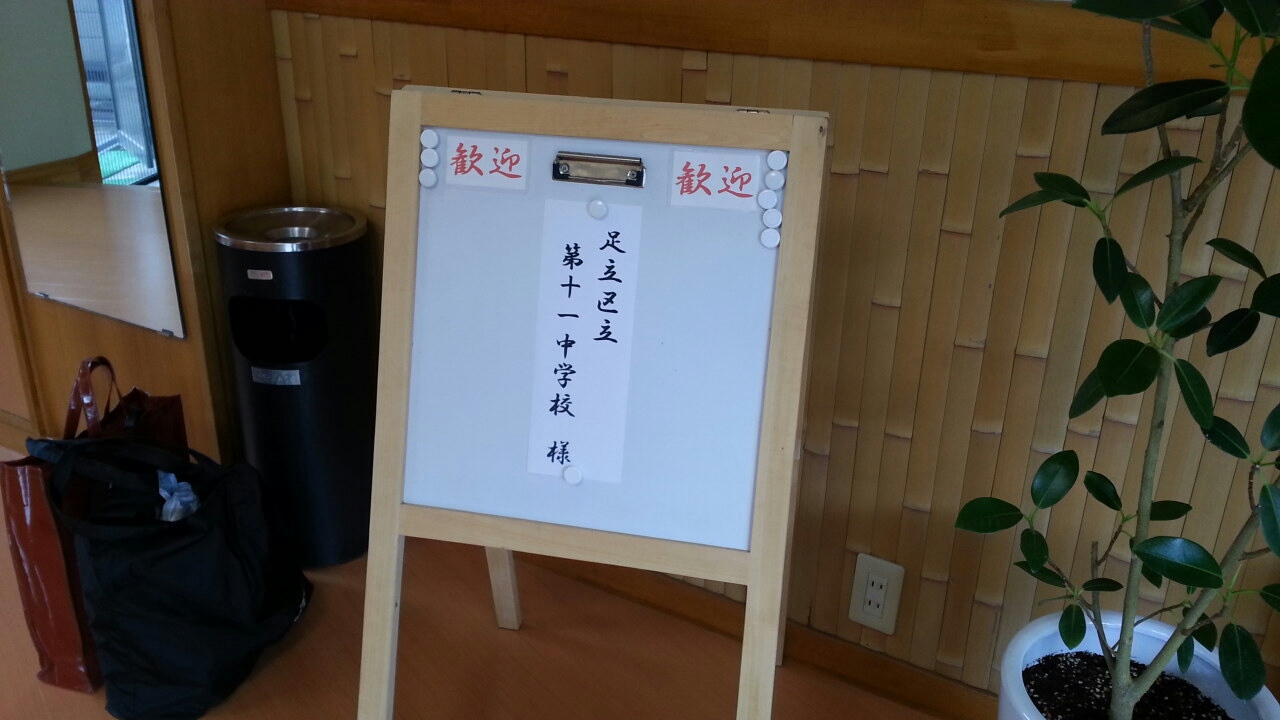 歓迎
歓迎
足立区立
第十一中学校 様